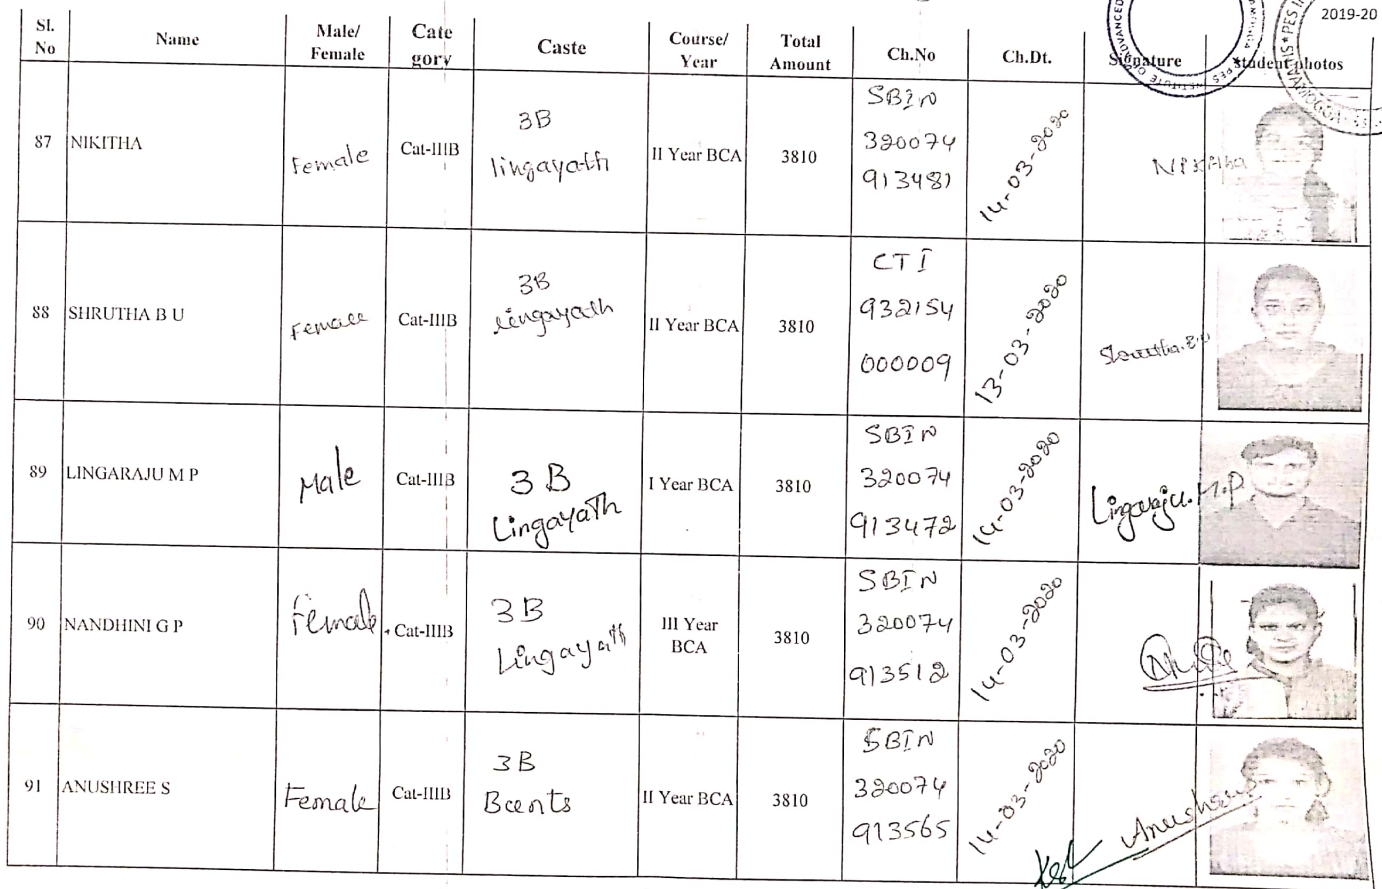 2019-20
Sl. No Name Male/ Female Cate gory Caste Course/ Year Total Amount Ch.No Ch.Dt. Signature student photos
87 NIKITHA Female Cat-IIIB 3B lingayath II Year BCA 3810 SBIN 320074 913481 14-03-2020 Nikitha
88 SHRUTHA B U Female Cat-IIIB 3B lingayath II Year BCA 3810 CTI 932154 000009 13-03-2020 Shrutha.B.U
89 LINGARAJU M P Male Cat-IIIB 3B Lingayath I Year BCA 3810 SBIN 320074 913472 14-03-2020 Lingaraju.M.P
90 NANDHINI G P Female Cat-IIIB 3B Lingayath III Year BCA 3810 SBIN 320074 913512 14-03-2020
91 ANUSHREE S Female Cat-IIIB 3B II Year BCA 3810 SBIN 320074 913565 14-03-2020